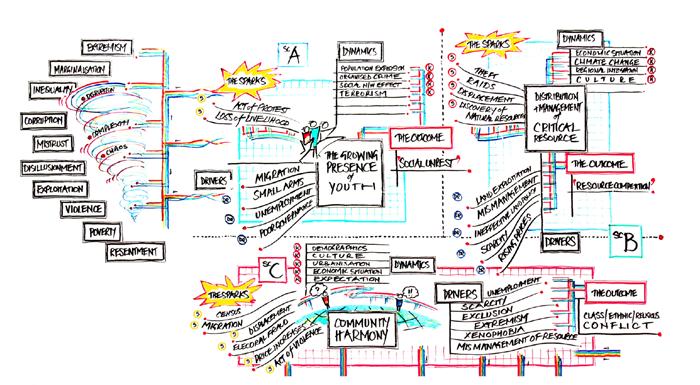 EXTREMISM
MARGINALISATION
INEQUALITY
DISRUPTION
CORRUPTION
COMPLEXITY
MISTRUST
CHAOS
DISILLUSIONMENT
EXPLOITATION
VIOLENCE
POVERTY
RESENTMENT
SC A
THE SPARKS
ACT OF PROTEST
LOSS OF LIVELIHOOD
DYNAMICS
POPULATION EXPLOSION
ORGANISED CRIME
SOCIAL N/W EFFECT
TERRORISM
THE GROWING
PRESENCE
of
YOUTH
THE OUTCOME
"SOCIAL UNREST"
DRIVERS
MIGRATION
SMALL ARMS
UNEMPLOYMENT
POOR GOVERNANCE
THE SPARKS
THEFT
RAIDS
DISPLACEMENT
DISCOVERY of
NATURAL RESOURCES
DYNAMICS
ECONOMIC SITUATION
CLIMATE CHANGE
REGIONAL INTEGRATION
CULTURE
DISTRIBUTION
+ MANAGEMENT
of
CRITICAL
RESOURCE
THE OUTCOME
"RESOURCE COMPETITION"
LAND EXPLOITATION
MISMANAGEMENT
SCARCITY
DRIVERS
SC B
SC C
DEMOGRAPHICS
CULTURE
URBANISATION
ECONOMIC SITUATION
EXPECTATION
DYNAMICS
THE SPARKS
CENSUS
MIGRATION
DISPLACEMENT
ELECORAL FRAUD
PRICE INCREASES
ACT OF VIOLENCE
?
!!
COMMUNITY
HARMONY
DRIVERS
UNEMPLOYMENT
SCARCITY
EXCLUSION
EXTREMISM
XENOPHOBIA
MISMANAGEMENT OF RESOURCE
THE OUTCOME
CLASS/ETHNIC/RELIGIOUS
CONFLICT